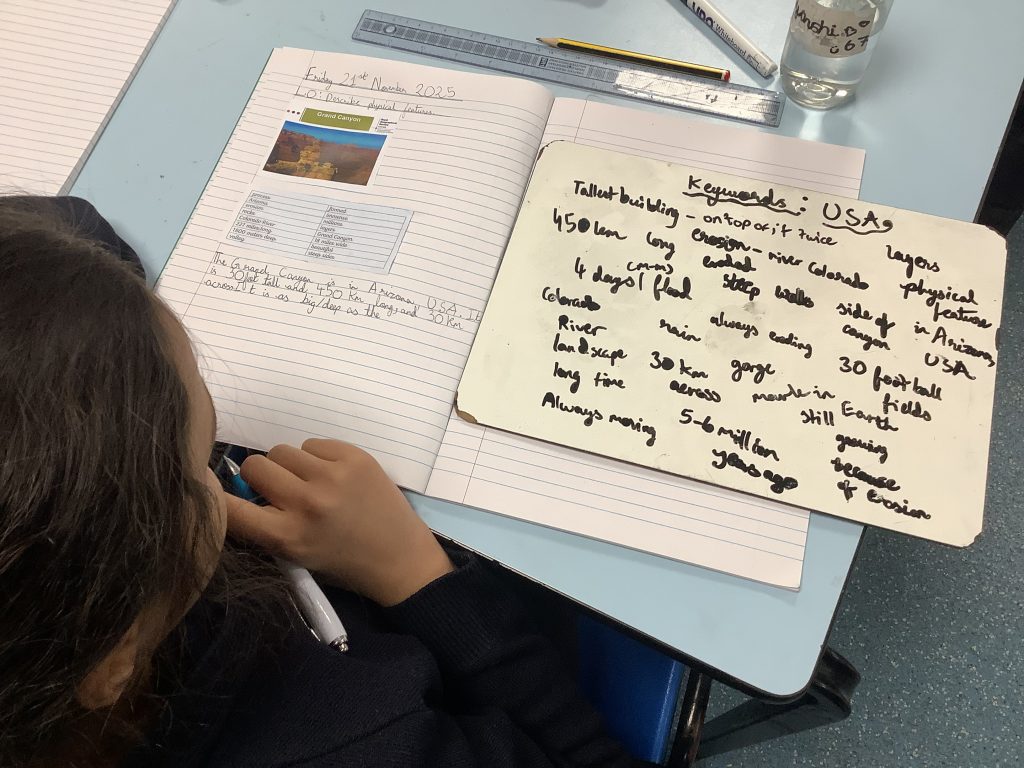 Friday 21st November 2025
LO: Describe physical features.
Grand Canyon
process
Arizona
erosion
rocks
Colorado River
277 miles long
1800 meters deep
valley
formed
immense
millions
layers
Grand Canyon
18 miles wide
beautiful
steep sides
The Grand Canyon is in Arizona, USA. It
is 30 foot tall and 450 Km long, and 30 Km
across. It is as big/deep as the
Keywords: USA
Tallest building - on top of it twice
450 km long erosion - river Colorado layers
4 days / flood eroded steep walls side of canyon physical feature in Arizona, USA
Colorado River rain always eroding
landscape 30 km across gorge made in 30 football fields
long time still Earth growing because of erosion
Always moving 5-6 million years ago